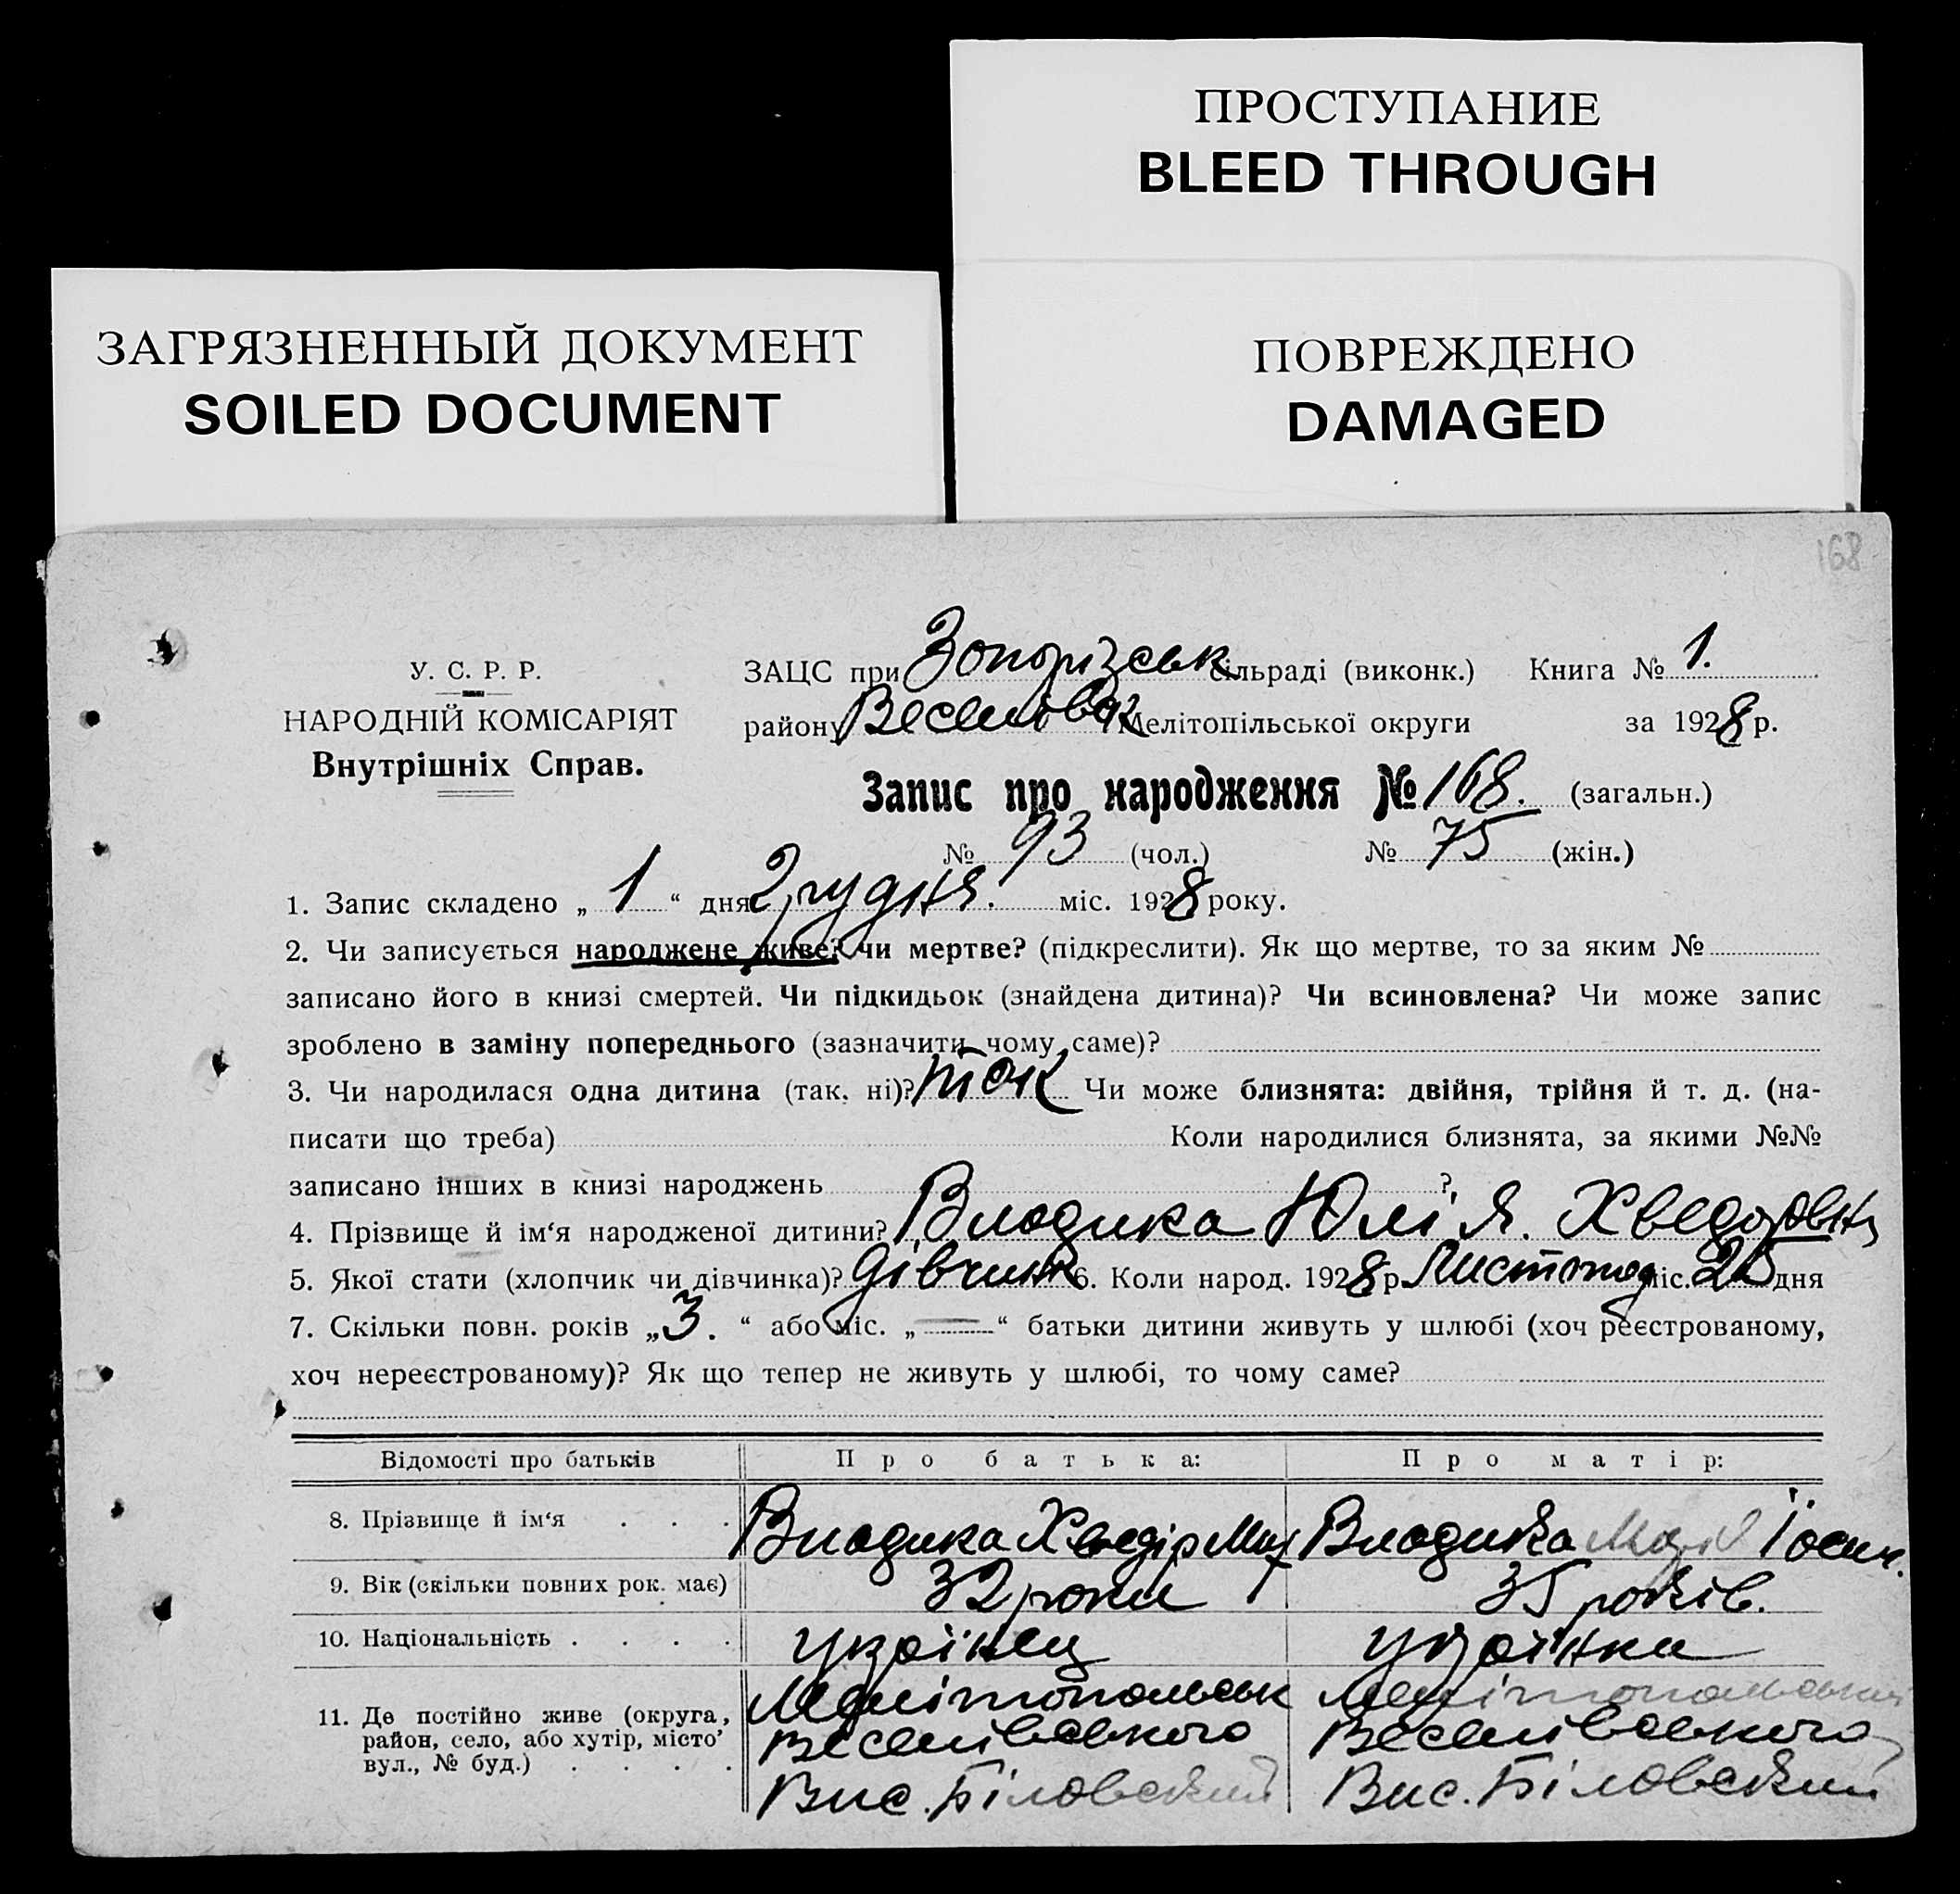 ПРОСТУПАНИЕ
BLEED THROUGH
ЗАГРЯЗНЕННЫЙ ДОКУМЕНТ
SOILED DOCUMENT
ПОВРЕЖДЕНО
DAMAGED
168
У. С. Р. Р.
НАРОДНІЙ КОМІСАРІЯТ
Внутрішніх Справ.
ЗАЦС при Запорізськ сільраді (виконк.) Книга № 1.
району Веселівськ Мелітопільської округи за 1928 р.
Запис про народження № 168. (загальн.)
№ 93 (чол.) № 75 (жін.)
1. Запис складено „ 1 “ дня Грудня. міс. 1928 року.
2. Чи записується народжене живе? чи мертве? (підкреслити). Як що мертве, то за яким №
записано його в книзі смертей. Чи підкидьок (знайдена дитина)? Чи всиновлена? Чи може запис
зроблено в заміну попереднього (зазначити чому саме)?
3. Чи народилася одна дитина (так, ні)? так Чи може близнята: двійня, трійня й т. д. (на-
писати що треба) Коли народилися близнята, за якими №№
записано інших в книзі народжень ?
4. Прізвище й ім‘я народженої дитини? Владика Юлія. Хведоровна
5. Якої стати (хлопчик чи дівчинка)? дівчинк 6. Коли народ. 1928 р. Листопад міс. 25 дня
7. Скільки повн. років „ 3. “ або міс. „ — “ батьки дитини живуть у шлюбі (хоч реєстрованому,
хоч нереєстрованому)? Як що тепер не живуть у шлюбі, то чому саме?
Відомості про батьків Про батька: Про матір:
8. Прізвище й ім‘я . . . Владика Хведір Мих Владика Марія Іосип.
9. Вік (скільки повних рок. має) 32 роки 35 років.
10. Національність . . . . українец українка
11. Де постійно живе (округа, район, село, або хутір, місто’ вул., № буд.) . . . . Мелітопольськ Мелітопольський
Веселівського Веселівського
Вис. Біловский Вис. Біловский